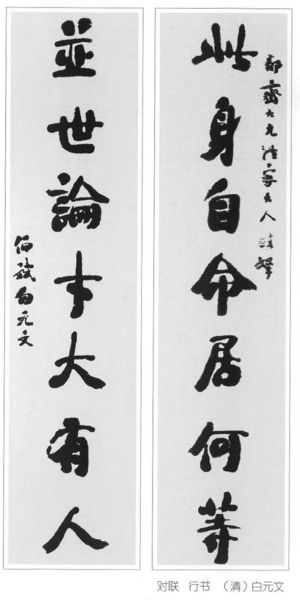 此身自命居何等
齋大兄法家大人
並世論才大有人
白元文
对联 行书 （清）白元文